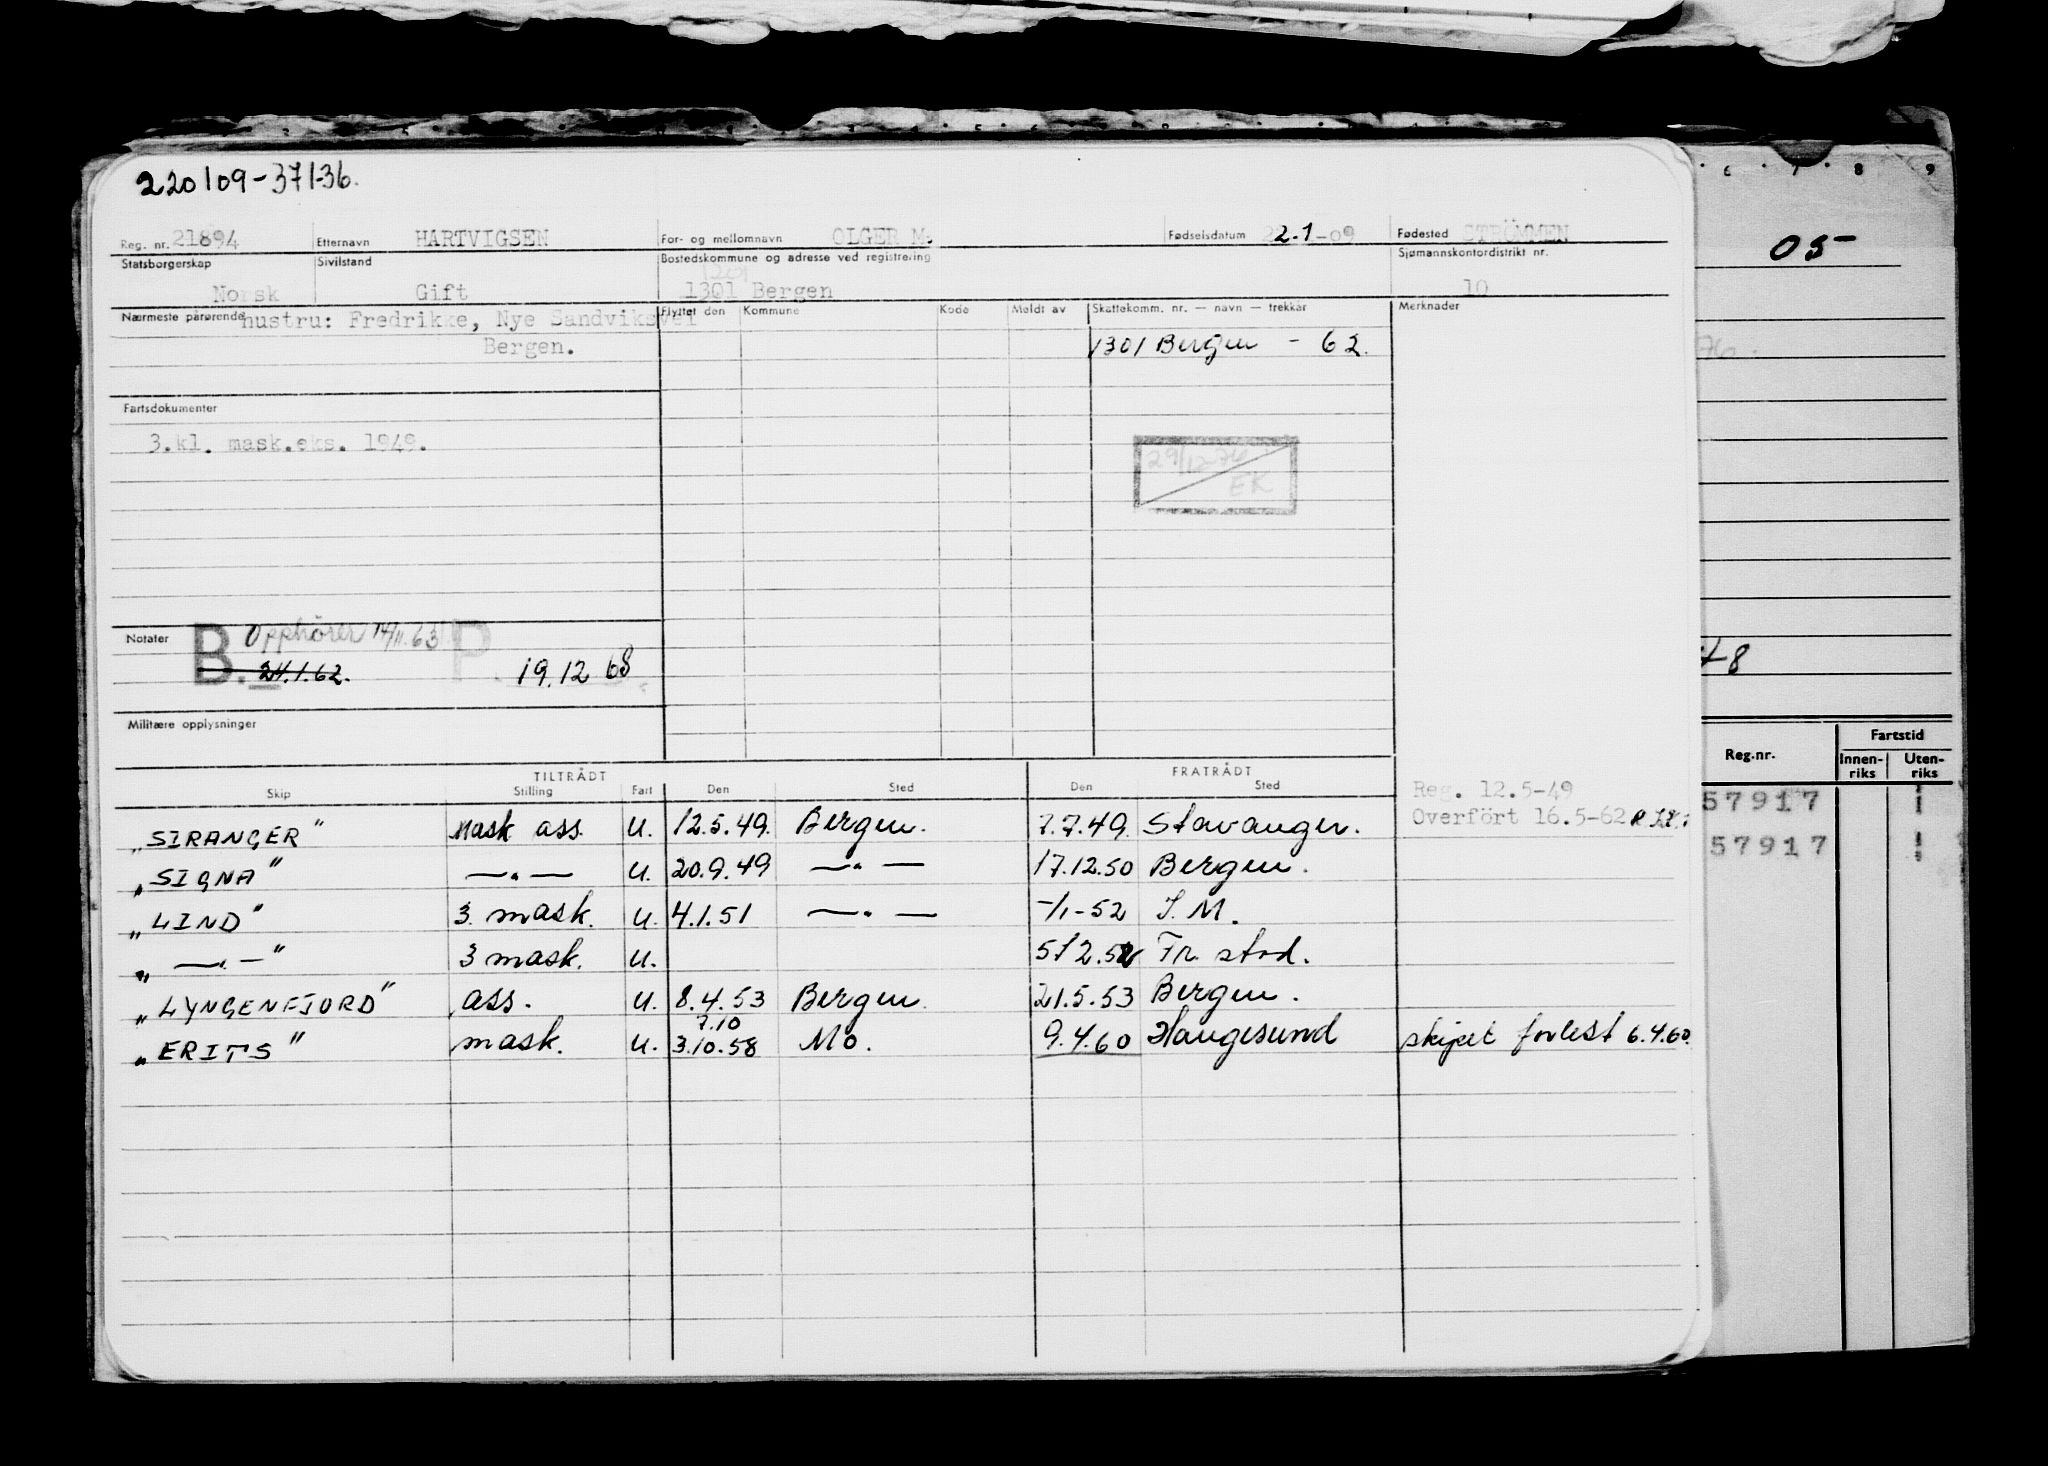 220109-37136.
Reg. nr. 21894 Etternavn HARTVIGSEN For- og mellomnavn OLGER M. Fødselsdatum 22.1-09 Fødested STRÖMMEN
Statsborgerskap Sivilstand Bostedskommune og adresse ved registrering Sjømannskontordistrikt nr.
1201
Norsk Gift 1301 Bergen 10
Nærmeste pårørende hustru: Fredrikke, Nye Sandviksvei Flyttet den Kommune Kode Meldt av Skattekomm. nr. — navn — trekkår Merknader
Bergen. 1301 Bergen - 62.
Fartsdokumenter
3.kl. mask.eks. 1949.
29/12-76
EK
Notater B. Opphörer 14/11.63 P.
24.1.62. 19.12 68
Militære opplysninger
TILTRÅDT FRATRÅDT
Skip Stilling Fart Den Sted Den Sted
Reg. 12.5-49
Overfört 16.5-62
"SIRANGER" Mask ass. U. 12.5.49. Bergen. 7.7.49. Stavanger.
"SIGNA" —"— U. 20.9.49 —"— 17.12.50 Bergen.
"LIND" 3. mask. U. 4.1.51 —"— -/1-52 S.M.
"—"—" 3 mask. U. 5/2.52 Fr. stod.
"LYNGENFJORD" ass. U. 8.4.53 Bergen 21.5.53 Bergen.
7.10
"ERITS" mask. U. 3.10.58 Mo. 9.4.60 Haugesund skipet forlist 6.4.60.
6 7 8 9
05
76.
48
Reg.nr. Fartstid
Innen-riks Uten-riks
57917
57917